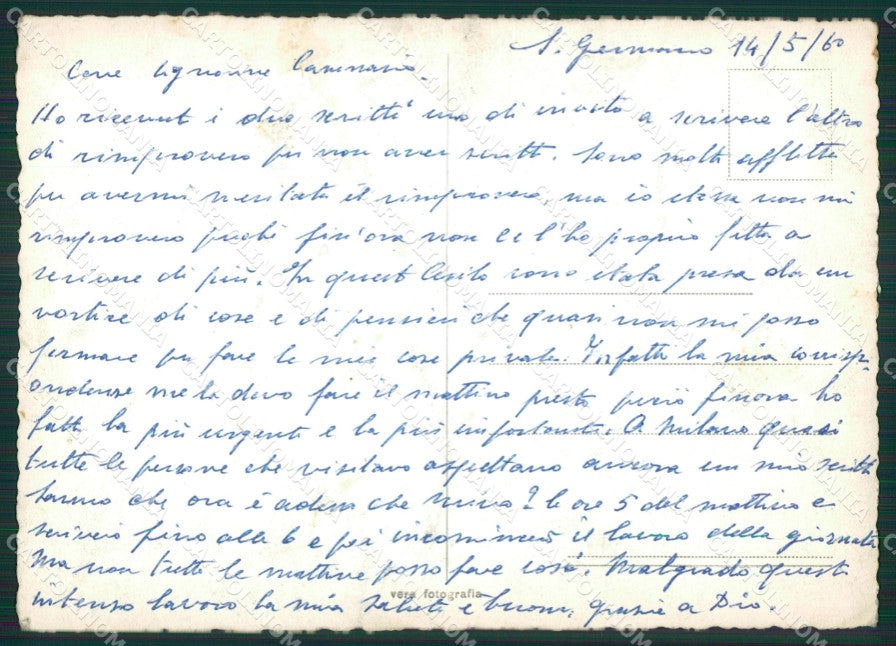 S. Germano 14/5/60
Care signorine
Ho ricevut i due scritti uno di invito a scrivere l'altro
di rimprovero per non aver scritt. Sono molt afflitta
per avermi meritata il rimprovero, ma io stessa non mi
rimprovero perchè fin'ora non ce l'ho proprio fatta a
scrivere di più. In quest' sono stata presa da un
vortice di cose e di pensieri che quasi non mi posso
fermare per fare le mie cose private. Infatti la mia corrisp-
ondenza me la devo fare il mattino presto perciò finora ho
fatt la più urgente e la più importante. A Milano quasi
tutte le persone che visitavo aspettano ancora un mio scritt
Sanno che ora è adesso che scrivo? le ore 5 del mattino e
scrivo fino alle 6 e poi incomincio il lavoro della giornata
Ma non tutte le mattine posso fare così. Malgrado quest
intenso lavoro la mia salute e buona, grazie a Dio.
vera fotografia
CARTOLINOMANIA